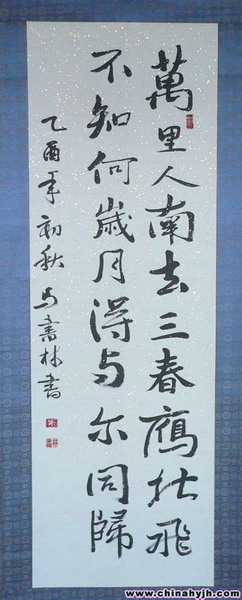 萬里人南去三春鴈北飛
不知何歲月得与尔同歸
乙酉年初秋马林書
www.chinahyjh.com